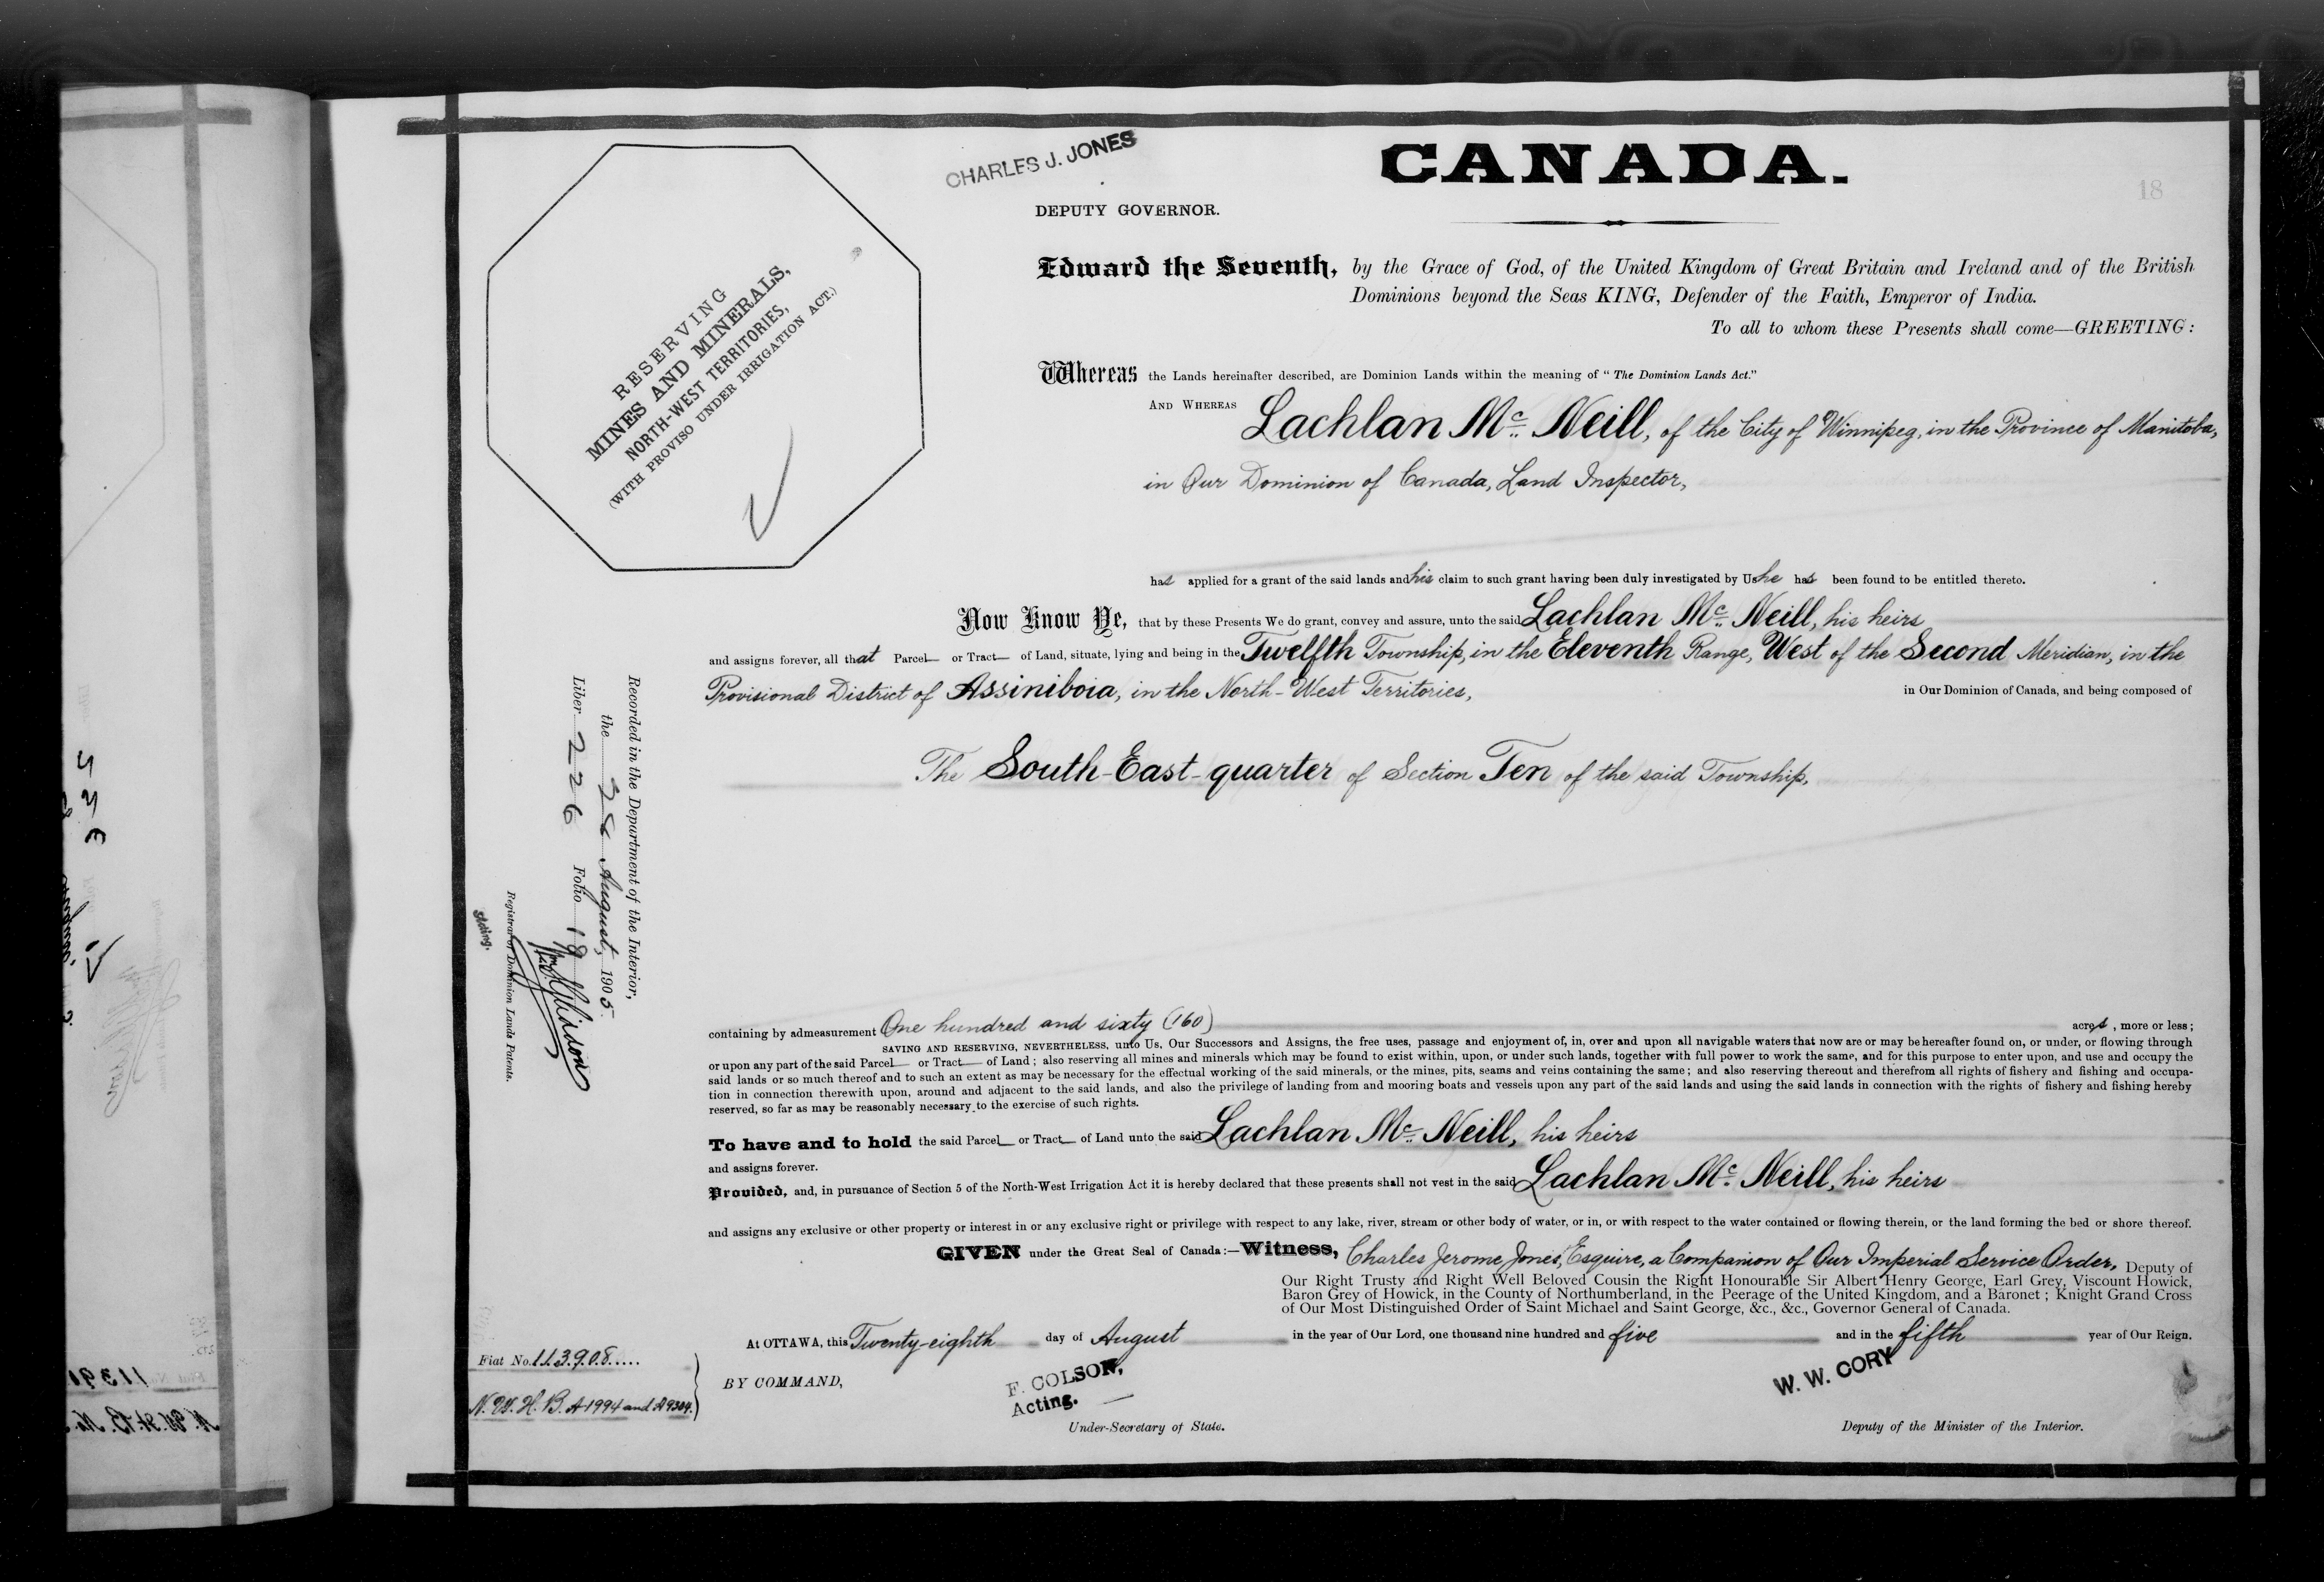 CHARLES J. JONES
DEPUTY GOVERNOR.
CANADA.
18
RESERVING
MINES AND MINERALS,
NORTH-WEST TERRITORIES,
(WITH PROVISO UNDER IRRIGATION ACT.)
Edward the Seventh, by the Grace of God, of the United Kingdom of Great Britain and Ireland and of the British
Dominions beyond the Seas KING, Defender of the Faith, Emperor of India.
To all to whom these Presents shall come—GREETING:
Whereas the Lands hereinafter described, are Dominion Lands within the meaning of "The Dominion Lands Act."
AND WHEREAS Lachlan Mc Neill, of the City of Winnipeg, in the Province of Manitoba,
in Our Dominion of Canada, Land Inspector,
has applied for a grant of the said lands and his claim to such grant having been duly investigated by Us he has been found to be entitled thereto.
Now Know Ye, that by these Presents We do grant, convey and assure, unto the said Lachlan Mc Neill, his heirs
and assigns forever, all that Parcel or Tract of Land, situate, lying and being in the Twelfth Township, in the Eleventh Range, West of the Second Meridian, in the
Provisional District of Assiniboia, in the North-West Territories, in Our Dominion of Canada, and being composed of
The South-East-quarter of Section Ten of the said Township,
Recorded in the Department of the Interior,
the August, 1905.
Liber 226 Folio 18
Registrar of Dominion Lands Patents.
Acting.
containing by admeasurement One hundred and sixty (160) acres, more or less;
SAVING AND RESERVING, NEVERTHELESS, unto Us, Our Successors and Assigns, the free uses, passage and enjoyment of, in, over and upon all navigable waters that now are or may be hereafter found on, or under, or flowing through
or upon any part of the said Parcel or Tract of Land; also reserving all mines and minerals which may be found to exist within, upon, or under such lands, together with full power to work the same, and for this purpose to enter upon, and use and occupy the
said lands or so much thereof and to such an extent as may be necessary for the effectual working of the said minerals, or the mines, pits, seams and veins containing the same; and also reserving thereout and therefrom all rights of fishery and fishing and occupa-
tion in connection therewith upon, around and adjacent to the said lands, and also the privilege of landing from and mooring boats and vessels upon any part of the said lands and using the said lands in connection with the rights of fishery and fishing hereby
reserved, so far as may be reasonably necessary to the exercise of such rights.
To have and to hold the said Parcel or Tract of Land unto the said Lachlan Mc Neill, his heirs
and assigns forever.
Provided, and, in pursuance of Section 5 of the North-West Irrigation Act it is hereby declared that these presents shall not vest in the said Lachlan Mc Neill, his heirs
and assigns any exclusive or other property or interest in or any exclusive right or privilege with respect to any lake, river, stream or other body of water, or in, or with respect to the water contained or flowing therein, or the land forming the bed or shore thereof.
GIVEN under the Great Seal of Canada:—Witness, Charles Jerome Jones, Esquire, a Companion of Our Imperial Service Order, Deputy of
Our Right Trusty and Right Well Beloved Cousin the Right Honourable Sir Albert Henry George, Earl Grey, Viscount Howick,
Baron Grey of Howick, in the County of Northumberland, in the Peerage of the United Kingdom, and a Baronet; Knight Grand Cross
of Our Most Distinguished Order of Saint Michael and Saint George, &c., &c., Governor General of Canada.
At OTTAWA, this Twenty-eighth day of August in the year of Our Lord, one thousand nine hundred and five and in the fifth year of Our Reign.
Fiat No. 113908
N. W. H. B. A 1994 and A 9304.
BY COMMAND,
F. COLSON,
Acting.
Under-Secretary of State.
W. W. CORY
Deputy of the Minister of the Interior.